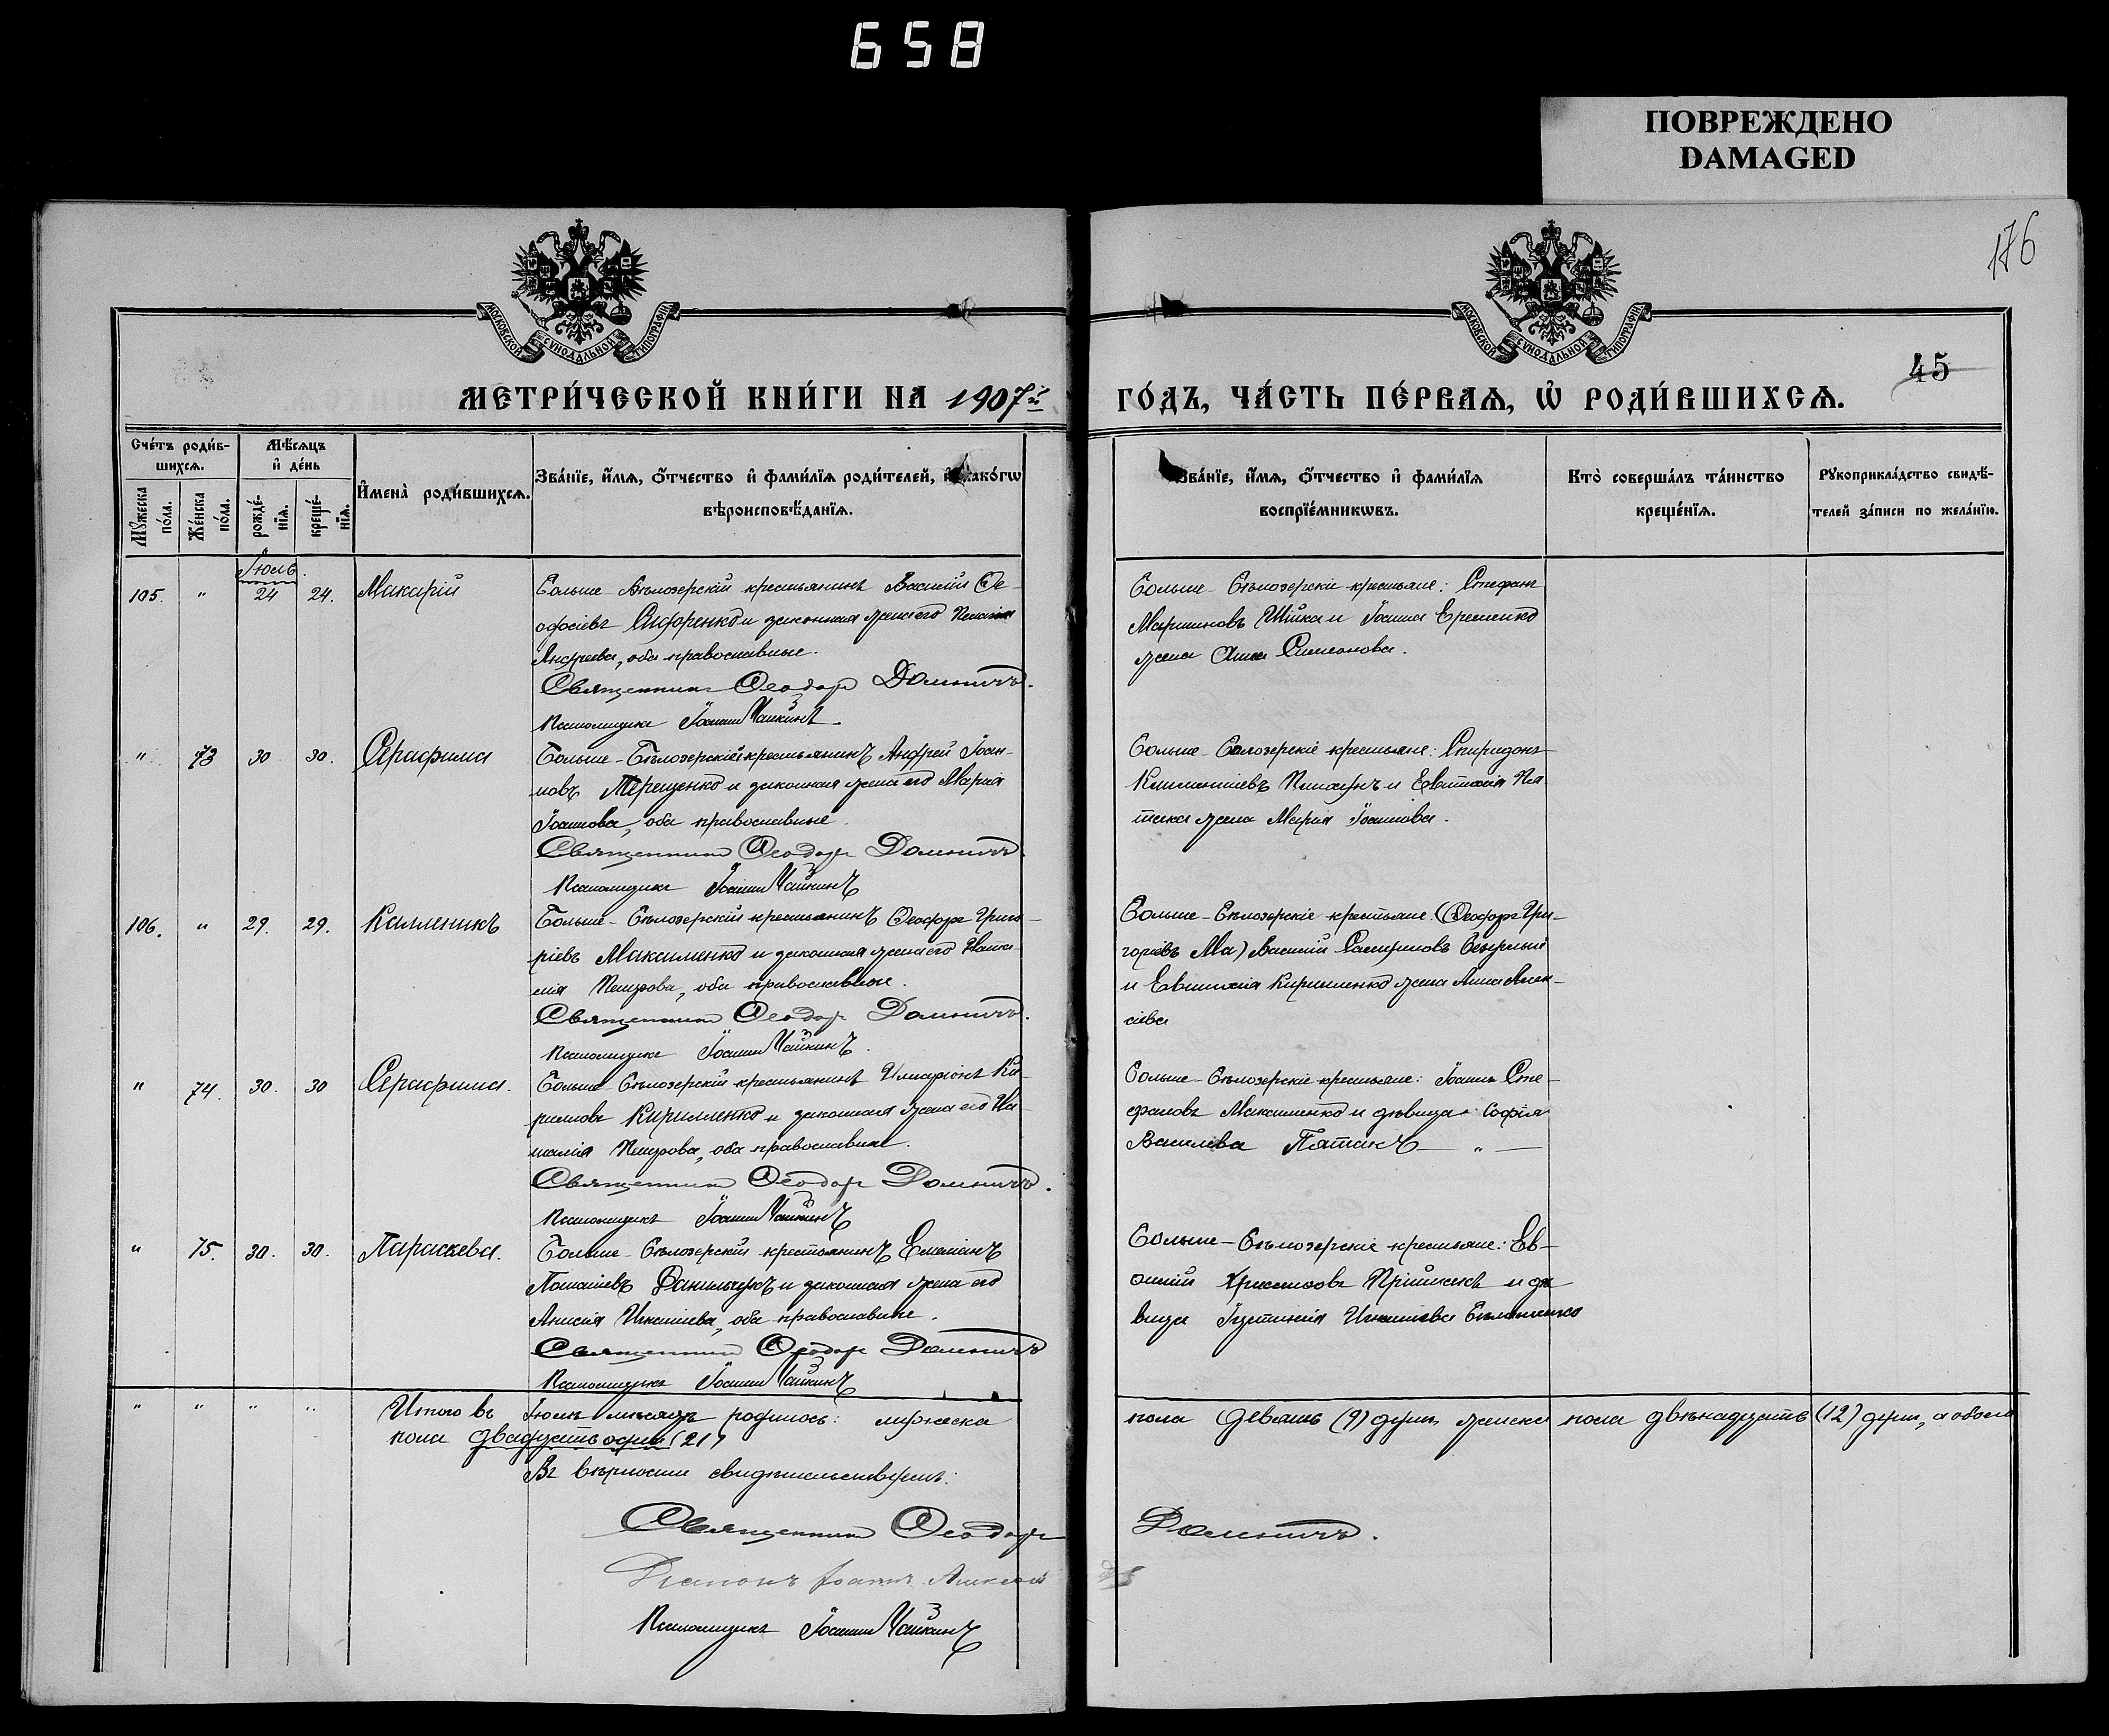 658
ПОВРЕЖДЕНО
DAMAGED
176
45
МОСКОВСКОЙ СѴНОДАЛЬНОЙ ТИПОГРАФІИ
МОСКОВСКОЙ СѴНОДАЛЬНОЙ ТИПОГРАФІИ
МЕТРИ́ЧЕСКОЙ КНИ́ГИ НА 1907й
ГО́ДЪ, ЧА́СТЬ ПЕ́РВАѦ, Ѡ҆ РОДИ́ВШИХСѦ.
Сче́тъ роди́в-
шихсѧ.
Мꙋ́жеска по́ла.
Же́нска по́ла.
Мѣ́сѧцъ
и҆ де́нь
рожде́-
нїѧ.
креще́-
нїѧ.
И҆мена̀ роди́вшихсѧ.
Зва́нїе, и҆́мѧ, ѻ҆́тчество и҆ фами́лїѧ роди́телей, и҆ како́гѡ
вѣроисповѣ́данїѧ.
Зва́нїе, и҆́мѧ, ѻ҆́тчество и҆ фами́лїѧ
воспрїе́мникѡвъ.
Кто̀ соверша́лъ та́инство
креще́нїѧ.
Рꙋкоприкла́дство свидѣ́-
телей за́писи по жела́нїю.
Іюль
105. " 24 24. Макарій
Больше-Бѣлозерскій крестьянинъ Василій Ѳе-
офосіевъ и законная жена его Пелагія
Андреева, оба православные.
Священникъ Ѳеодоръ
Псаломщикъ Іоаннъ Чайкинъ
Больше-Бѣлозерскіе крестьяне: Стефанъ
Мартиновъ Шійка и Іоанна Еременко
жена Анна Симеонова.
" 73 30 30. Серафима
Больше-Бѣлозерскій крестьянинъ Андрей Іоан-
новъ Терещенко и законная жена его Марія
Іоаннова, оба православные.
Священникъ Ѳеодоръ
Псаломщикъ Іоаннъ Чайкинъ
Больше-Бѣлозерскіе крестьяне: Спиридонъ
Климентіевъ и Евтихія Пя-
така жена Марія Іоаннова.
106. " 29. 29. Каллиникъ
Больше-Бѣлозерскій крестьянинъ Ѳеодоръ Григо-
ріевъ Максименко и законная жена его Ната-
лія Петрова, оба православные.
Священникъ Ѳеодоръ
Псаломщикъ Іоаннъ Чайкинъ.
Больше-Бѣлозерскіе крестьяне: (Ѳеодоръ Гри-
горіевъ Ма) Василій
и Евтихія Кириленко жена Анна Алек-
сіева
" 74. 30. 30 Серафима.
Больше-Бѣлозерскій крестьянинъ Иларіонъ Ки-
рилловъ Кирилленко и законная жена его На-
талія Петрова, оба православные.
Священникъ Ѳеодоръ
Псаломщикъ Іоаннъ Чайкинъ
Больше-Бѣлозерскіе крестьяне: Іоаннъ Сте-
фановъ Максименко и дѣвица Софія
Васильева Пятакъ — " —
" 75. 30. 30. Параскева.
Больше-Бѣлозерскій крестьянинъ Емеліанъ
Данильчукъ и законная жена его
Анисія Игнатіева, оба православные.
Священникъ Ѳеодоръ
Псаломщикъ Іоаннъ Чайкинъ
Больше-Бѣлозерскіе крестьяне: Ев-
Пріймакъ и дѣ-
вица Іустинія Игнатіева
" " " " Итого въ Іюлѣ мѣсяцѣ родилось: мужеска
пола девять (9) душъ, женска пола двѣнадцать (12) душъ, а обоего
пола двадцать одна (21)
Въ вѣрности свидѣтельствуемъ:
Священникъ Ѳеодоръ
Діаконъ Іоаннъ
Псаломщикъ Іоаннъ Чайкинъ